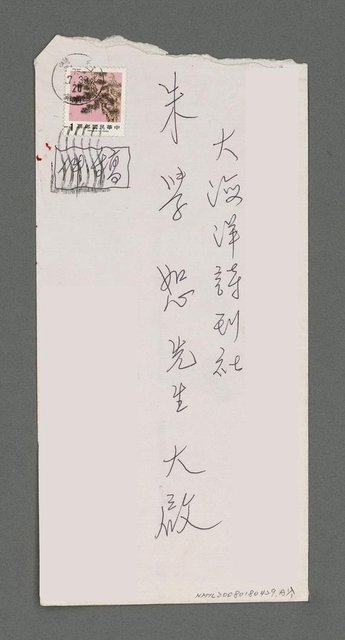 大海洋詩刊社
朱學恕先生大啟
中華民國郵票
1
7.30
20
NMTL20080180429